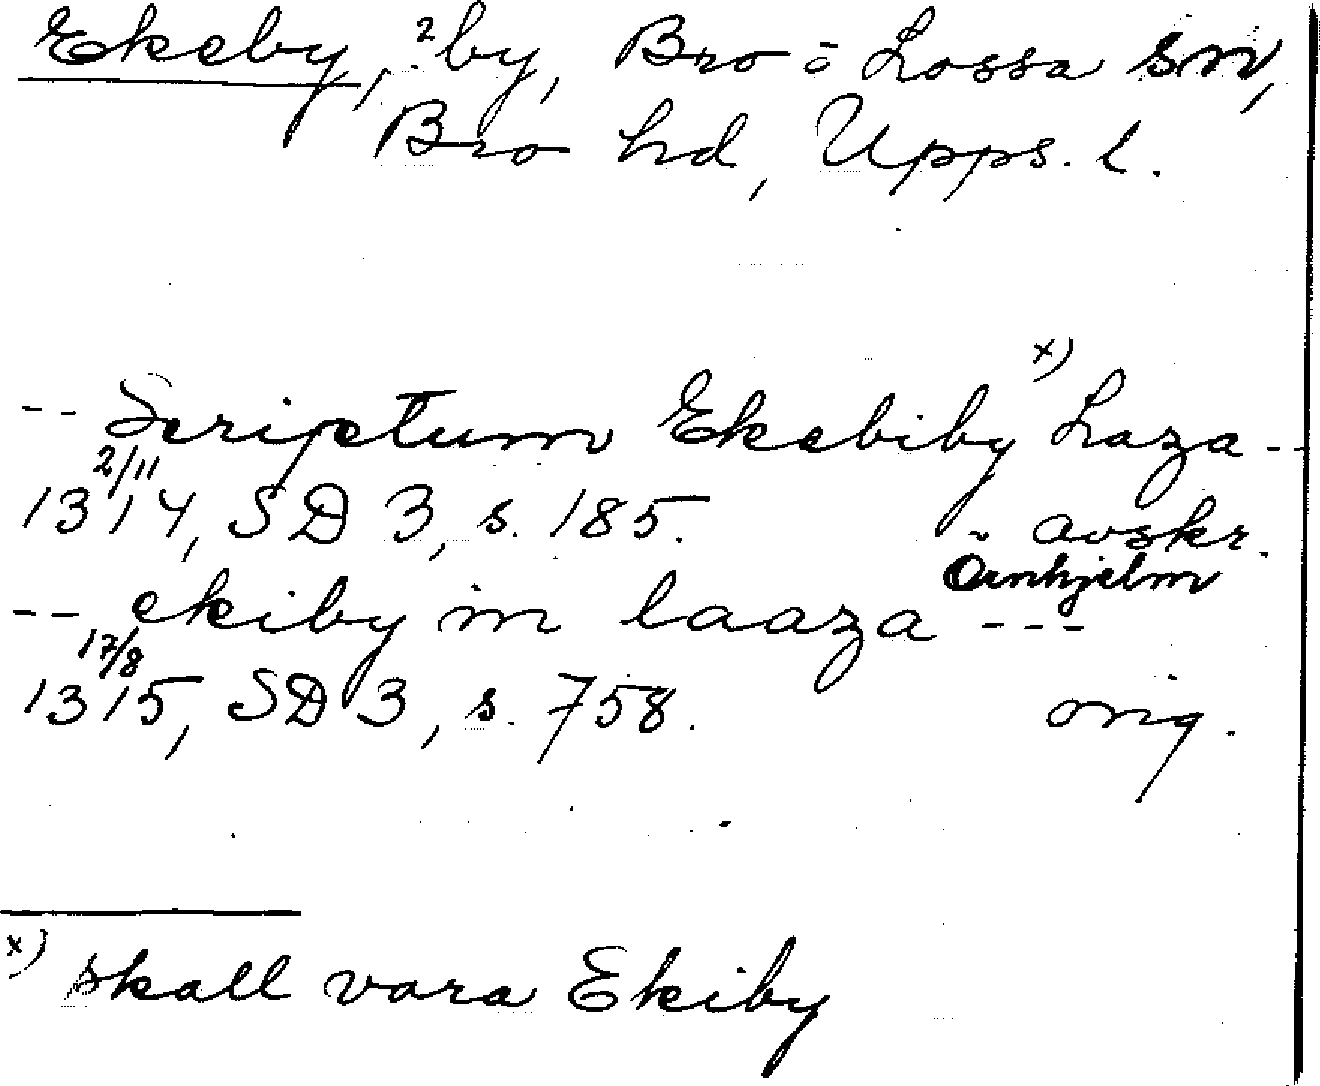 Ekeby, ²by, Bro o Lossa sn,
Bro hd, Upps. l.
x)
-- Scriptum Ekebiby Laza --
2/11
1314, SD 3, s. 185. avskr.
Örnhjelm
-- ekiby in laaza ---
17/8
1315, SD 3, s. 758. orig.
x) skall vara Ekiby